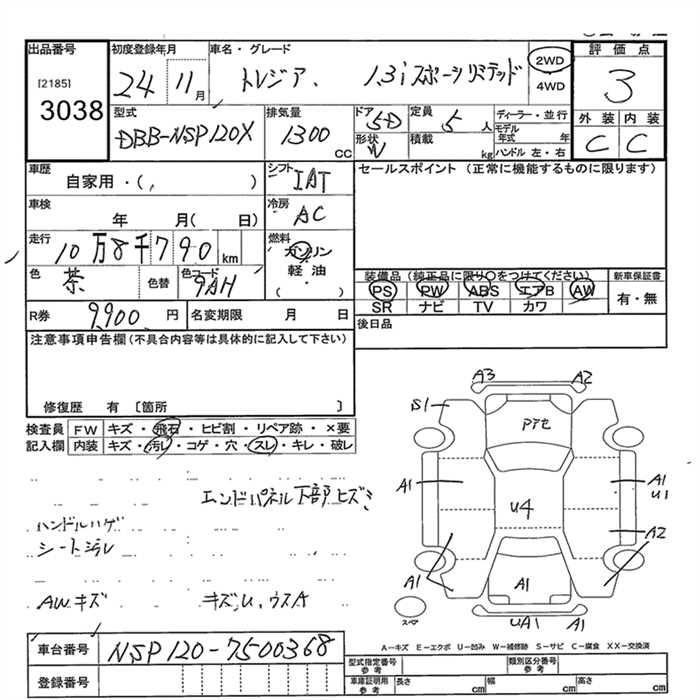 出品番号
[2185]
3038
初度登録年月
24 11月
車名・グレード
トレジア. 1.3iスポーツリミテッド
2WD
4WD
評価点
3
外装 内装
C C
型式
DBB-NSP120X
排気量
1300 CC
ドア 5D
形状 W
定員 5 人
積載 kg
ディーラー・並行
モデル年式 年
ハンドル 左・右
車歴
自家用・( )
車検 年 月( 日)
走行
10万8千790 km
色 茶 色替 色コード 9AH
シフト IAT
冷房 AC
燃料
ガソリン
軽油
( )
セールスポイント (正常に機能するものに限ります)
装備品 (純正品に限り〇をつけてください) 新車保証書
PS PW ABS エアB AW 有・無
SR ナビ TV カワ
後日品
R券 9,900 円 名変期限 月 日
注意事項申告欄(不具合内容等は具体的に記入して下さい)
修復歴 有 〔箇所 〕
検査員 FW キズ・飛石・ヒビ割・リペア跡・×要
記入欄 内装 キズ・汚レ・コゲ・穴・スレ・キレ・破レ
エンドパネル下部ヒズミ
ハンドルハゲ
シート汚レ
AWキズ キズU.ウスA
A3 A2
S1
アナセ
A1 A1
U1
U4
A2
A1 A1
スペア UA1 A1
A-キズ E-エクボ U-凹み W-補修跡 S-サビ C-腐食 XX-交換済
車台番号 NSP120-7500368
登録番号
型式指定番号 参考 類別区分番号 参考
車庫証明用 参考 長さ cm 幅 cm 高さ cm